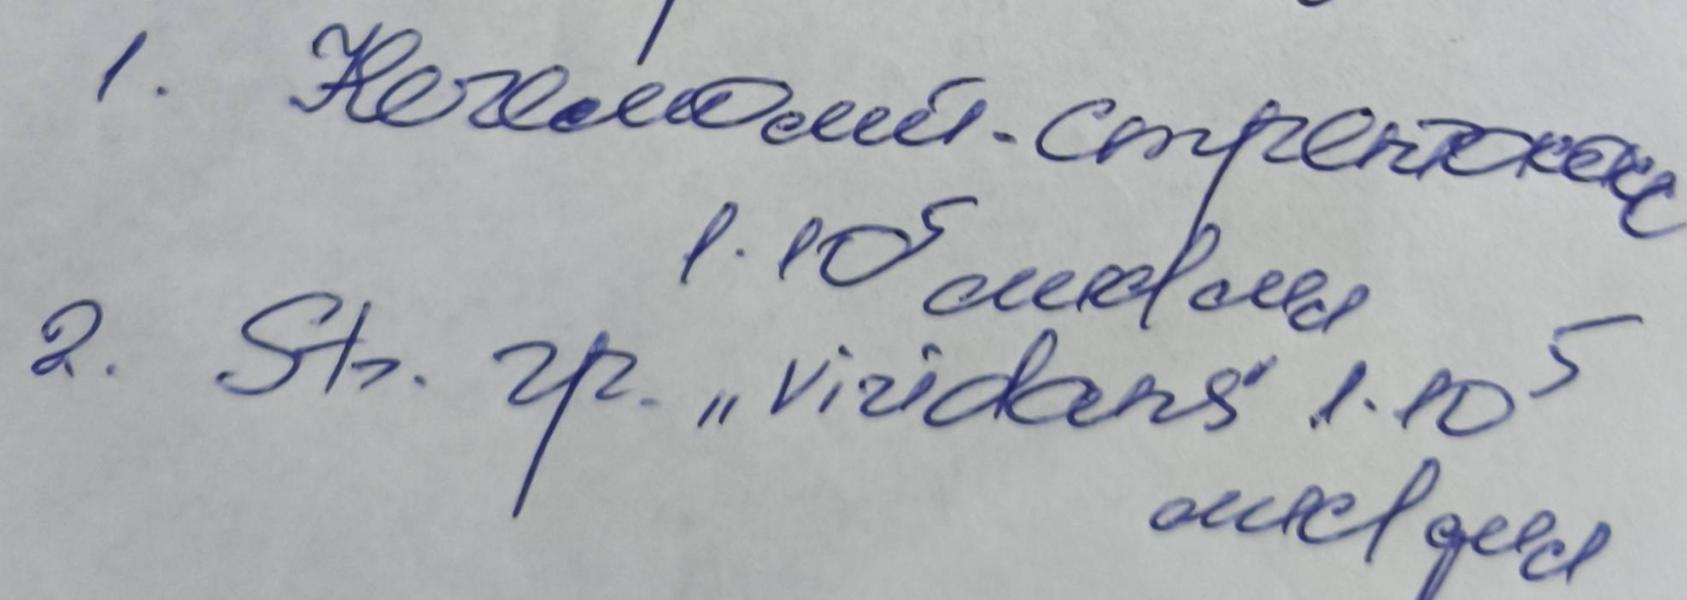 1. Негемолит. стрептококк
1·10⁵ мкл/мл
2. Str. sp. „viridans“ 1·10⁵